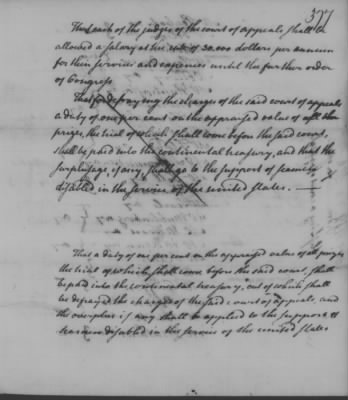 377
That each of the judges of the court of appeals, shall be
allowed a salary at the rate of 30.000 dollars per annum
for their services and expences until the further order
of Congress
That for defraying the charges of the said court of appeals
a duty of one per cent on the appraised value of all the
prizes, the trial of which shall come before the said court,
shall be paid into the continental treasury, and that the
surplusage, if any, shall go to the support of seamen
disabled in the service of the united states.
That a duty of one per cent on the appraised value of all prizes
the trial of which shall come before the said court, shall
be paid into the continental treasury, out of which shall
be defrayed the charges of the said court of appeals, and
the overplus if any shall be applied to the support of
seamen disabled in the service of the united states